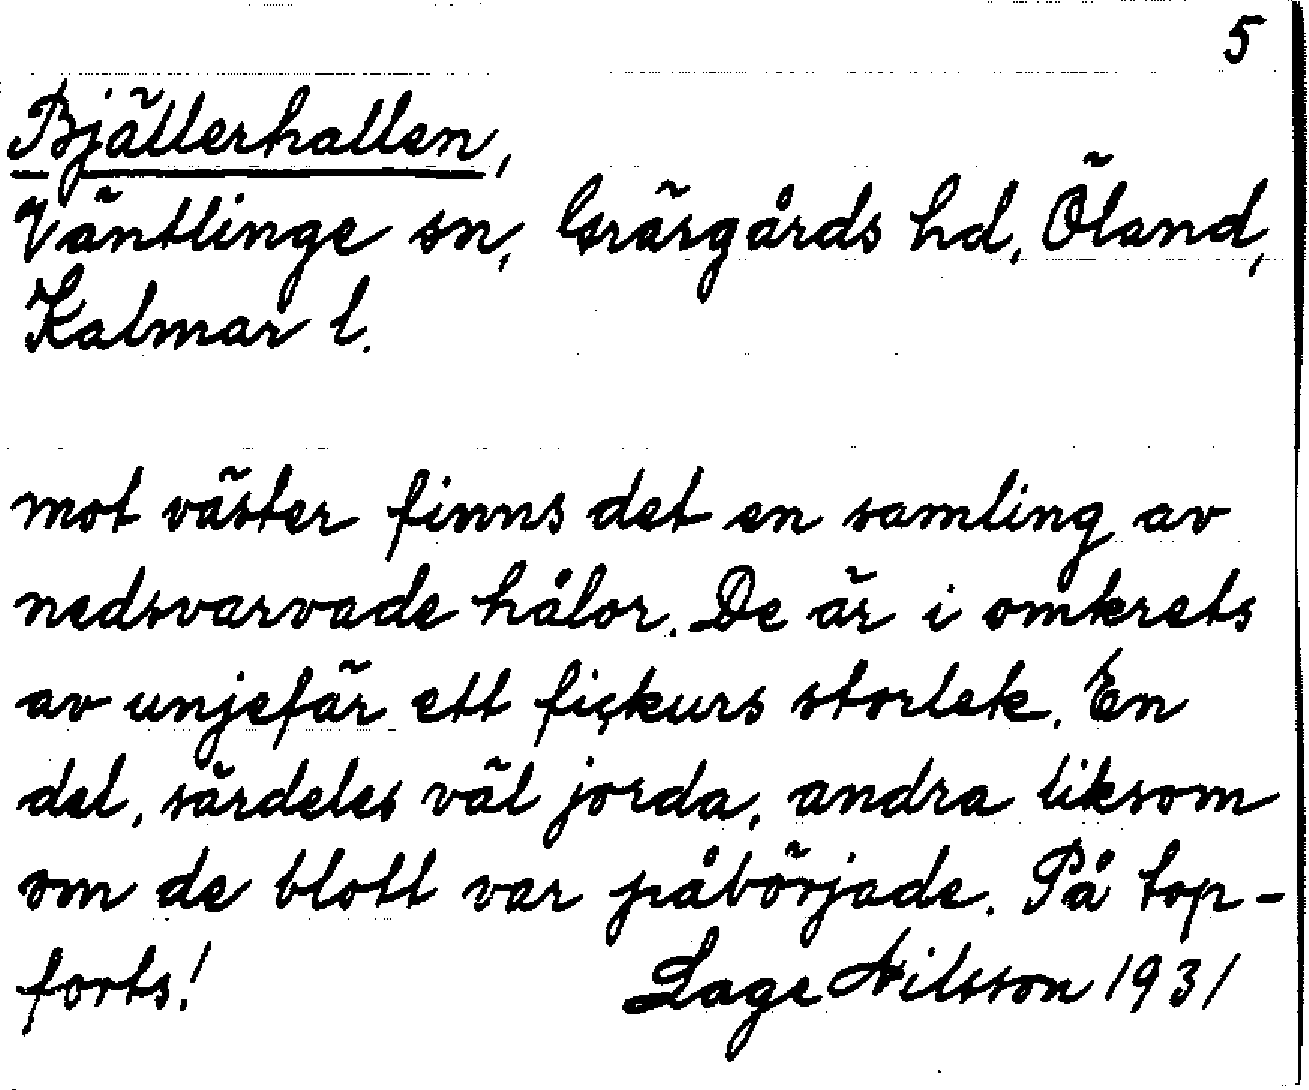 5
Bjällerhallen,
Väntlinge sn, Gräsgårds hd, Öland,
Kalmar l.
mot väster finns det en samling av
nedsvarvade hålor. De är i omkrets
av unjefär ett fickurs storlek. En
del, särdeles väl jorda, andra liksom
om de blott var påbörjade. På top-
forts! Lage Nilsson 1931